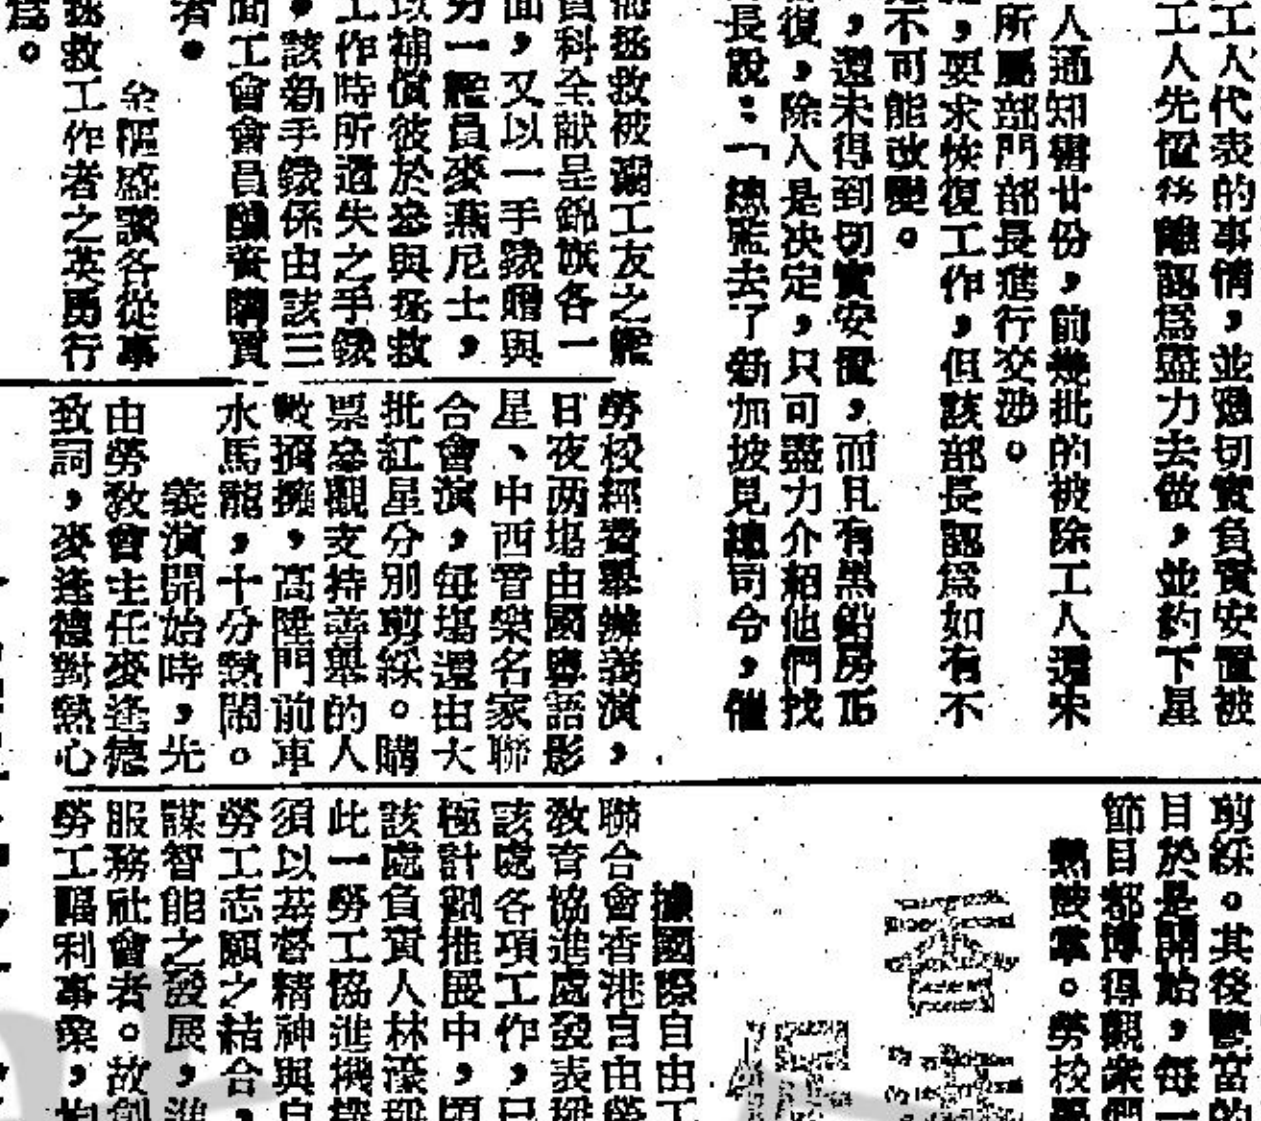 工人代表的事情，並邀切實負責安置被
工人先置於離認爲盡力去做，並約下星
人通知書廿份，前幾批的被除工人還未
所屬部門部長進行交涉。
，要求恢復工作，但該部長認爲如有不
不可能改變。
，還未得到切實安置，而且有黑鉛房
復，除人是決定，只可盡力介紹他們找
長說：「總監去了新加坡見總司令，催
拯救被溺工友之艦
資科全献呈錦旗各一
面，又以一手錶贈與
另一艦員麥燕尼士，
以補償彼於參與拯救
工作時所遺失之手錶
，該新手錶係由該三
間工會會員醵資購買
者。
余樞盛讚各從事
拯救工作者之英勇行
爲。
勞校經費舉辦義演，
日夜两塲由國粵語影
星、中西音樂名家聯
合會演，每塲還由大
批紅星分別剪綵。購
票參觀支持善舉的人
數擠擁，高陞門前車
水馬龍，十分熱鬧。
義演開始時，光
由勞教會主任麥逢德
致詞，麥逢德對熱心
剪綵。其後豐富的
目於是開始，每一
節目都博得觀衆們
熱鼓掌。勞校
據國際自由工
聯合會香港自由勞
教育協進處發表
該處各項工作，已
極計劃推展中，頃
該處負責人林濠
此一勞工協進機構
須以基督精神與自
勞工志願之結合，
謀智能之發展，進
服務社會者。故創
勞工福利事業，